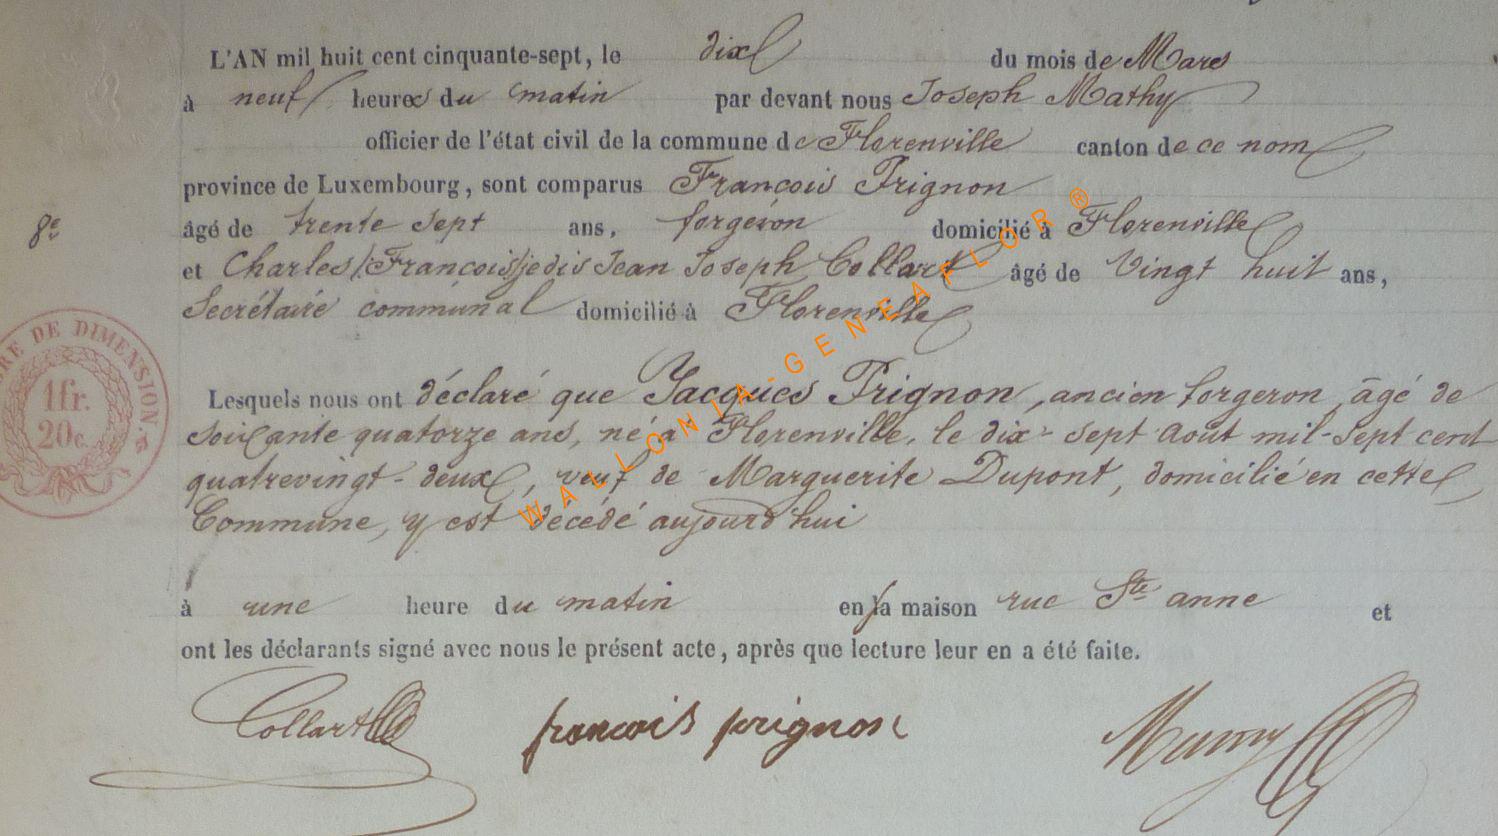 L'AN mil huit cent cinquante-sept, le dix du mois de Mars
à neuf heures du matin par devant nous Joseph Mathy
officier de l'état civil de la commune de Florenville canton de ce nom
province de Luxembourg, sont comparus François Prignon
âgé de trente sept ans, forgeron domicilié à Florenville
8e
et Charles /:François:/ je dis Jean Joseph Collart âgé de Vingt huit ans,
Secrétaire communal domicilié à Florenville
WALLONIA-GENEAFLOR®
TIMBRE DE DIMENSION
1fr.
20c.
Lesquels nous ont déclaré que Jacques Prignon, ancien forgeron, âgé de
soixante quatorze ans, né à Florenville, le dix-sept août mil-sept cent
quatrevingt-deux, veuf de Marguerite Dupont, domicilié en cette
Commune, y est décédé aujourd'hui
à une heure du matin en sa maison rue Ste anne et
ont les déclarants signé avec nous le présent acte, après que lecture leur en a été faite.
Collart françois prignon